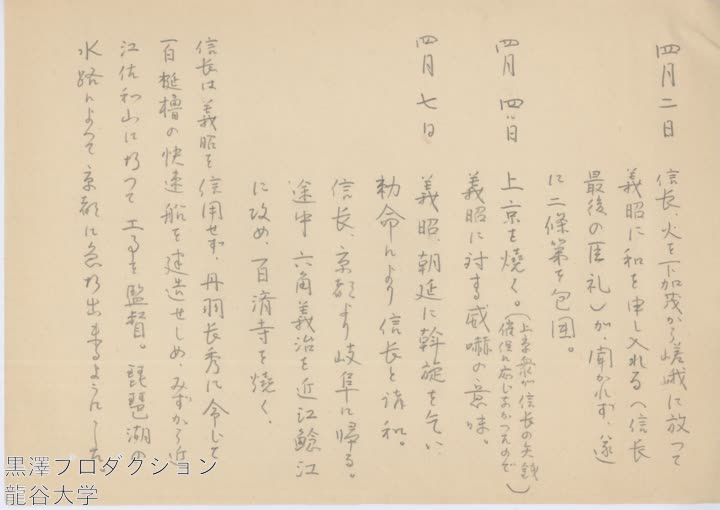 四月二日　信長、火を下加茂から嵯峨に放つて
義昭に和を申し入れる（信長
最後の臣礼）が、聞かれず、遂
に二條第を包囲。
四月四日　上京を燒く。（上京衆が信長の矢銭
催促に応じなかつたので）
義昭に対する威嚇の意味。
四月七日　義昭、朝廷に斡旋を乞い
勅命により信長と講和。
信長、京都より岐阜に帰る。
途中六角義治を近江鯰江
に攻め、百済寺を燒く、
信長は義昭を信用せず、丹羽長秀に令して
百梃櫓の快速船を建造せしめ、みずから近
江佐和山に行つて工事を監督。琵琶湖の
水路によつて京都に急行出来るようにした
黒澤プロダクション
龍谷大学